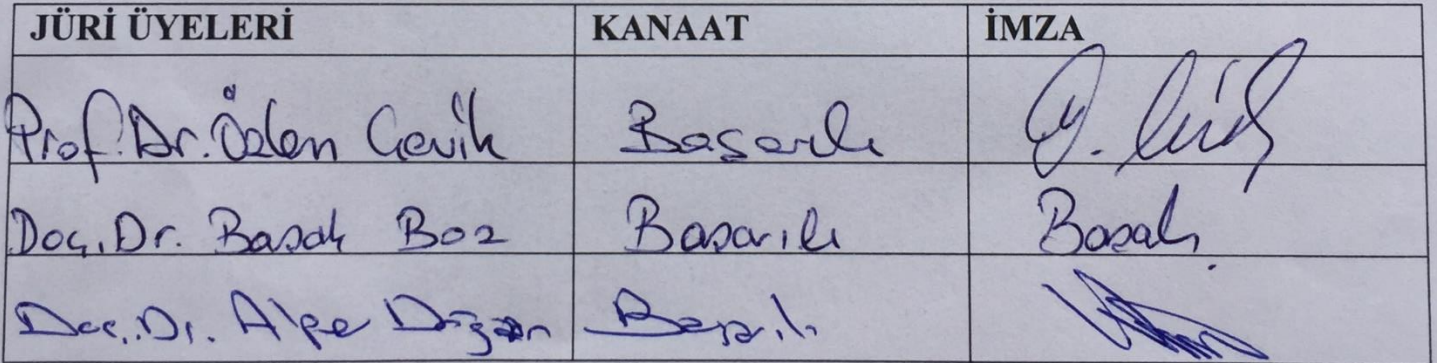 JÜRİ ÜYELERİ KANAAT İMZA
Prof. Dr. Özlem Çevik Başarılı
Doç. Dr. Başak Boz Başarılı Başak
Doç. Dr. Başarılı